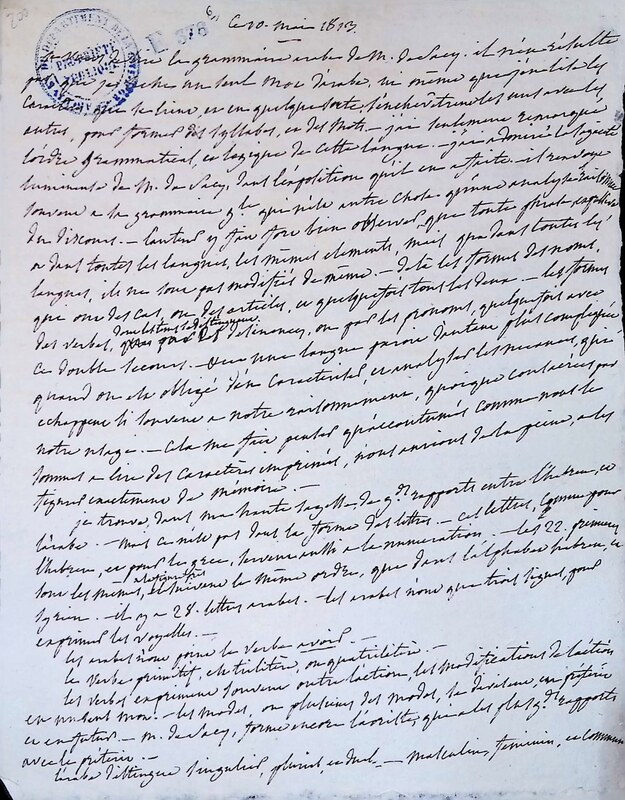 6
ce 10. mai 1813.
L E 376
de lire la grammaire arabe de M. de Sacy. il n'en résulte
pas que je sache un seul mot d'arabe, ni même que j'en lise les
caractères, que se lient, et en quelque sorte s'enchevêtrent les uns avec les
autres, pour former des syllabes, et des mots. - j'ai seulement remarqué
l'ordre grammatical, et logique de cette langue. - j'ai admiré la sagacité
lumineuse de M. de Sacy, dans l'exposition qu'il en a faite. - il renvoye
souvent a la grammaire gle qui n'est autre chose qu'une analyse
du discours. - l'auteur y fait fort bien observer, que toute phrase
a dans toutes les langues, les mêmes elements, mais que dans toutes les
langues, ils ne sont pas modifiés de même. - de là les formes des noms,
que ont des cas, ou des articles, et quelquefois tous les deux - les formes
des verbes, desinences, ou par les pronoms, quelquefois avec
ce double secours. - Qu'une langue paroit d'autant plus compliquée
quand on est obligé d'en caractériser, et analyser les nuances, qui
echappent si souvent a notre raisonnement, quoique consacrées par
notre usage. - Cela me fait penser qu'accoutumés comme nous le
sommes a lire des caractères imprimés, nous aurions de la peine, a les
figurer exactement de mémoire. -
je trouve, dans ma haute sagesse de gds rapports entre l'hebreu, et
l'arabe - mais ce n'est pas dans la forme des lettres. - ces lettres, comme pour
l'hebreu, et pour le grec, servent aussi a la numeration. - les 22. premieres
sont les mêmes, et suivent le même ordre, que dans l'alphabet hebreu, et
syrien. - il y a 28. lettres arabes. - les arabes n'ont que trois signes, pour
exprimer les voyelles. -
les arabes n'ont point le verbe avoir. -
le verbe primitif, est trilitère, ou quatrilitère. -
les verbes expriment souvent outre l'action, les modifications de l'action
en un seul mot. - les modes, ou plusieurs des modes, se divisent, en prétérit
et en futur. - M. de Sacy, forme encore l'aoriste, qui a les plus gds rapports
avec le prétérit. -
l'arabe distingue singulier, pluriel, et duel. - masculin, feminin, et commun